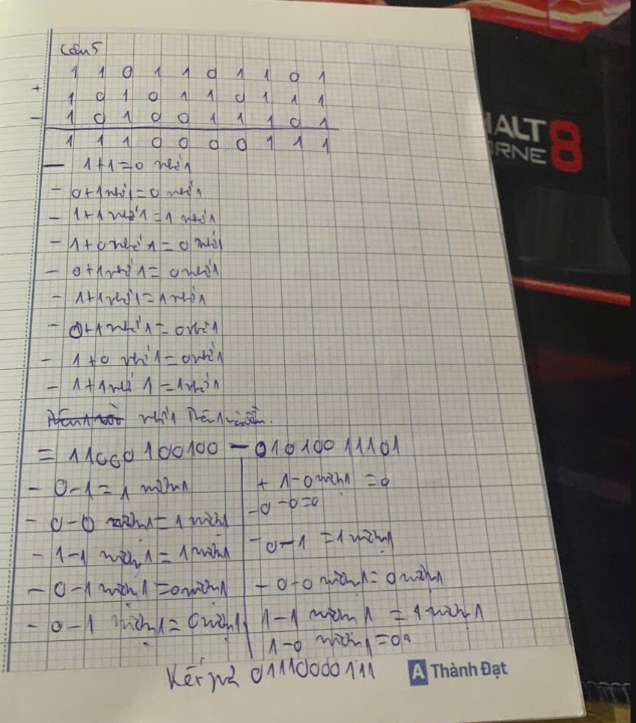 Câu 5
1 1 0 1 1 0 1 1 0 1
+
1 0 1 0 1 1 0 1 1 1
-
1 0 1 0 0 1 1 1 0 1
1 1 1 0 0 0 0 1 1 1
- 1+1=0 nhớ 1
- 0+1 nhớ 1=0 nhớ 1
- 1+1 nhớ 1=1 nhớ 1
- 1+0 nhớ 1=0 nhớ 1
- 0+1 nhớ 1=0 nhớ 1
- 1+1 nhớ 1=1 nhớ 1
- 0+1 nhớ 1=0 nhớ 1
- 1+0 nhớ 1=0 nhớ 1
- 1+1 nhớ 1=1 nhớ 1
nhớ 1
= 11000100100 - 01010011101
- 0-1=1 mượn 1
- 0-0 mượn 1=1 mượn 1
- 1-1 mượn 1=1 mượn 1
- 0-1 mượn 1=0 mượn 1
- 0-1 mượn 1=0 mượn 1
+ 1-0 mượn 1=0
- 0-0=0
- 0-1=1 mượn 1
- 0-0 mượn 1=0 mượn 1
1-1 mượn 1=1 mượn 1
1-0 mượn 1=0
Kết quả 01110000111
A Thành Đạt
HALT
ORNE
8